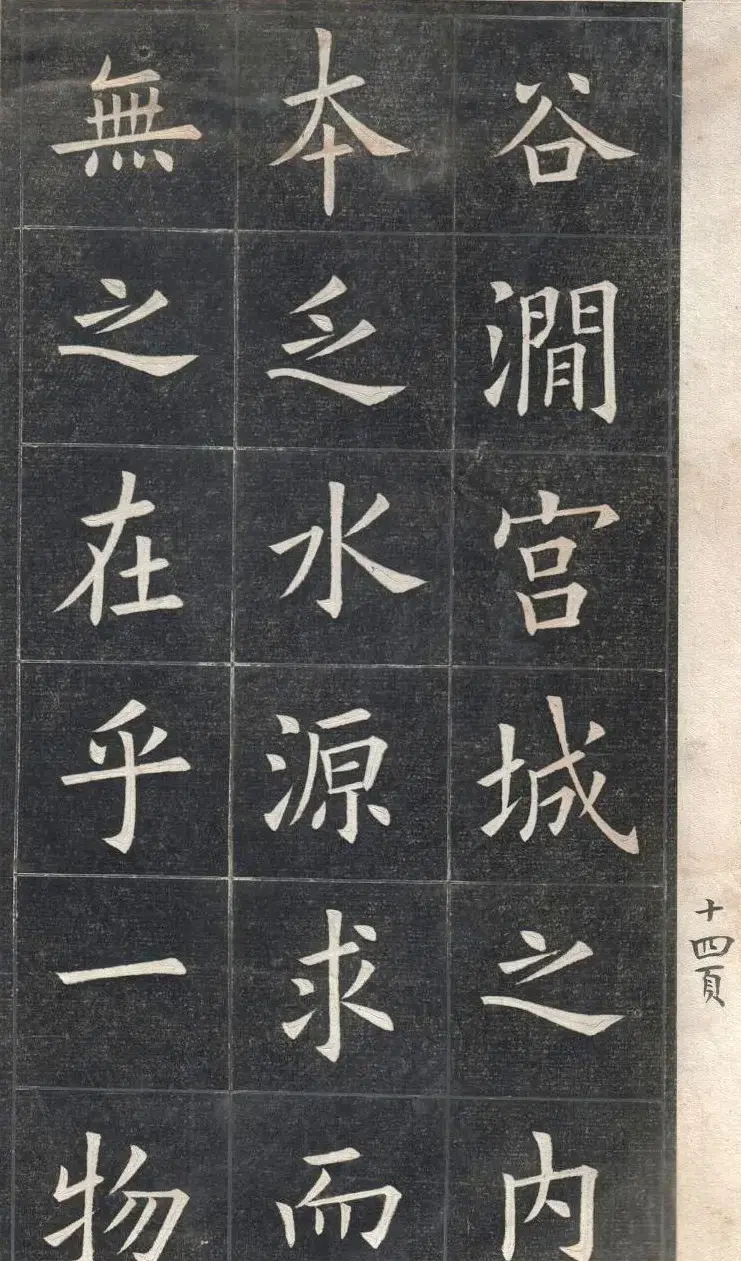 谷澗宮城之内
本乏水源求而
無之在乎一物
十四頁